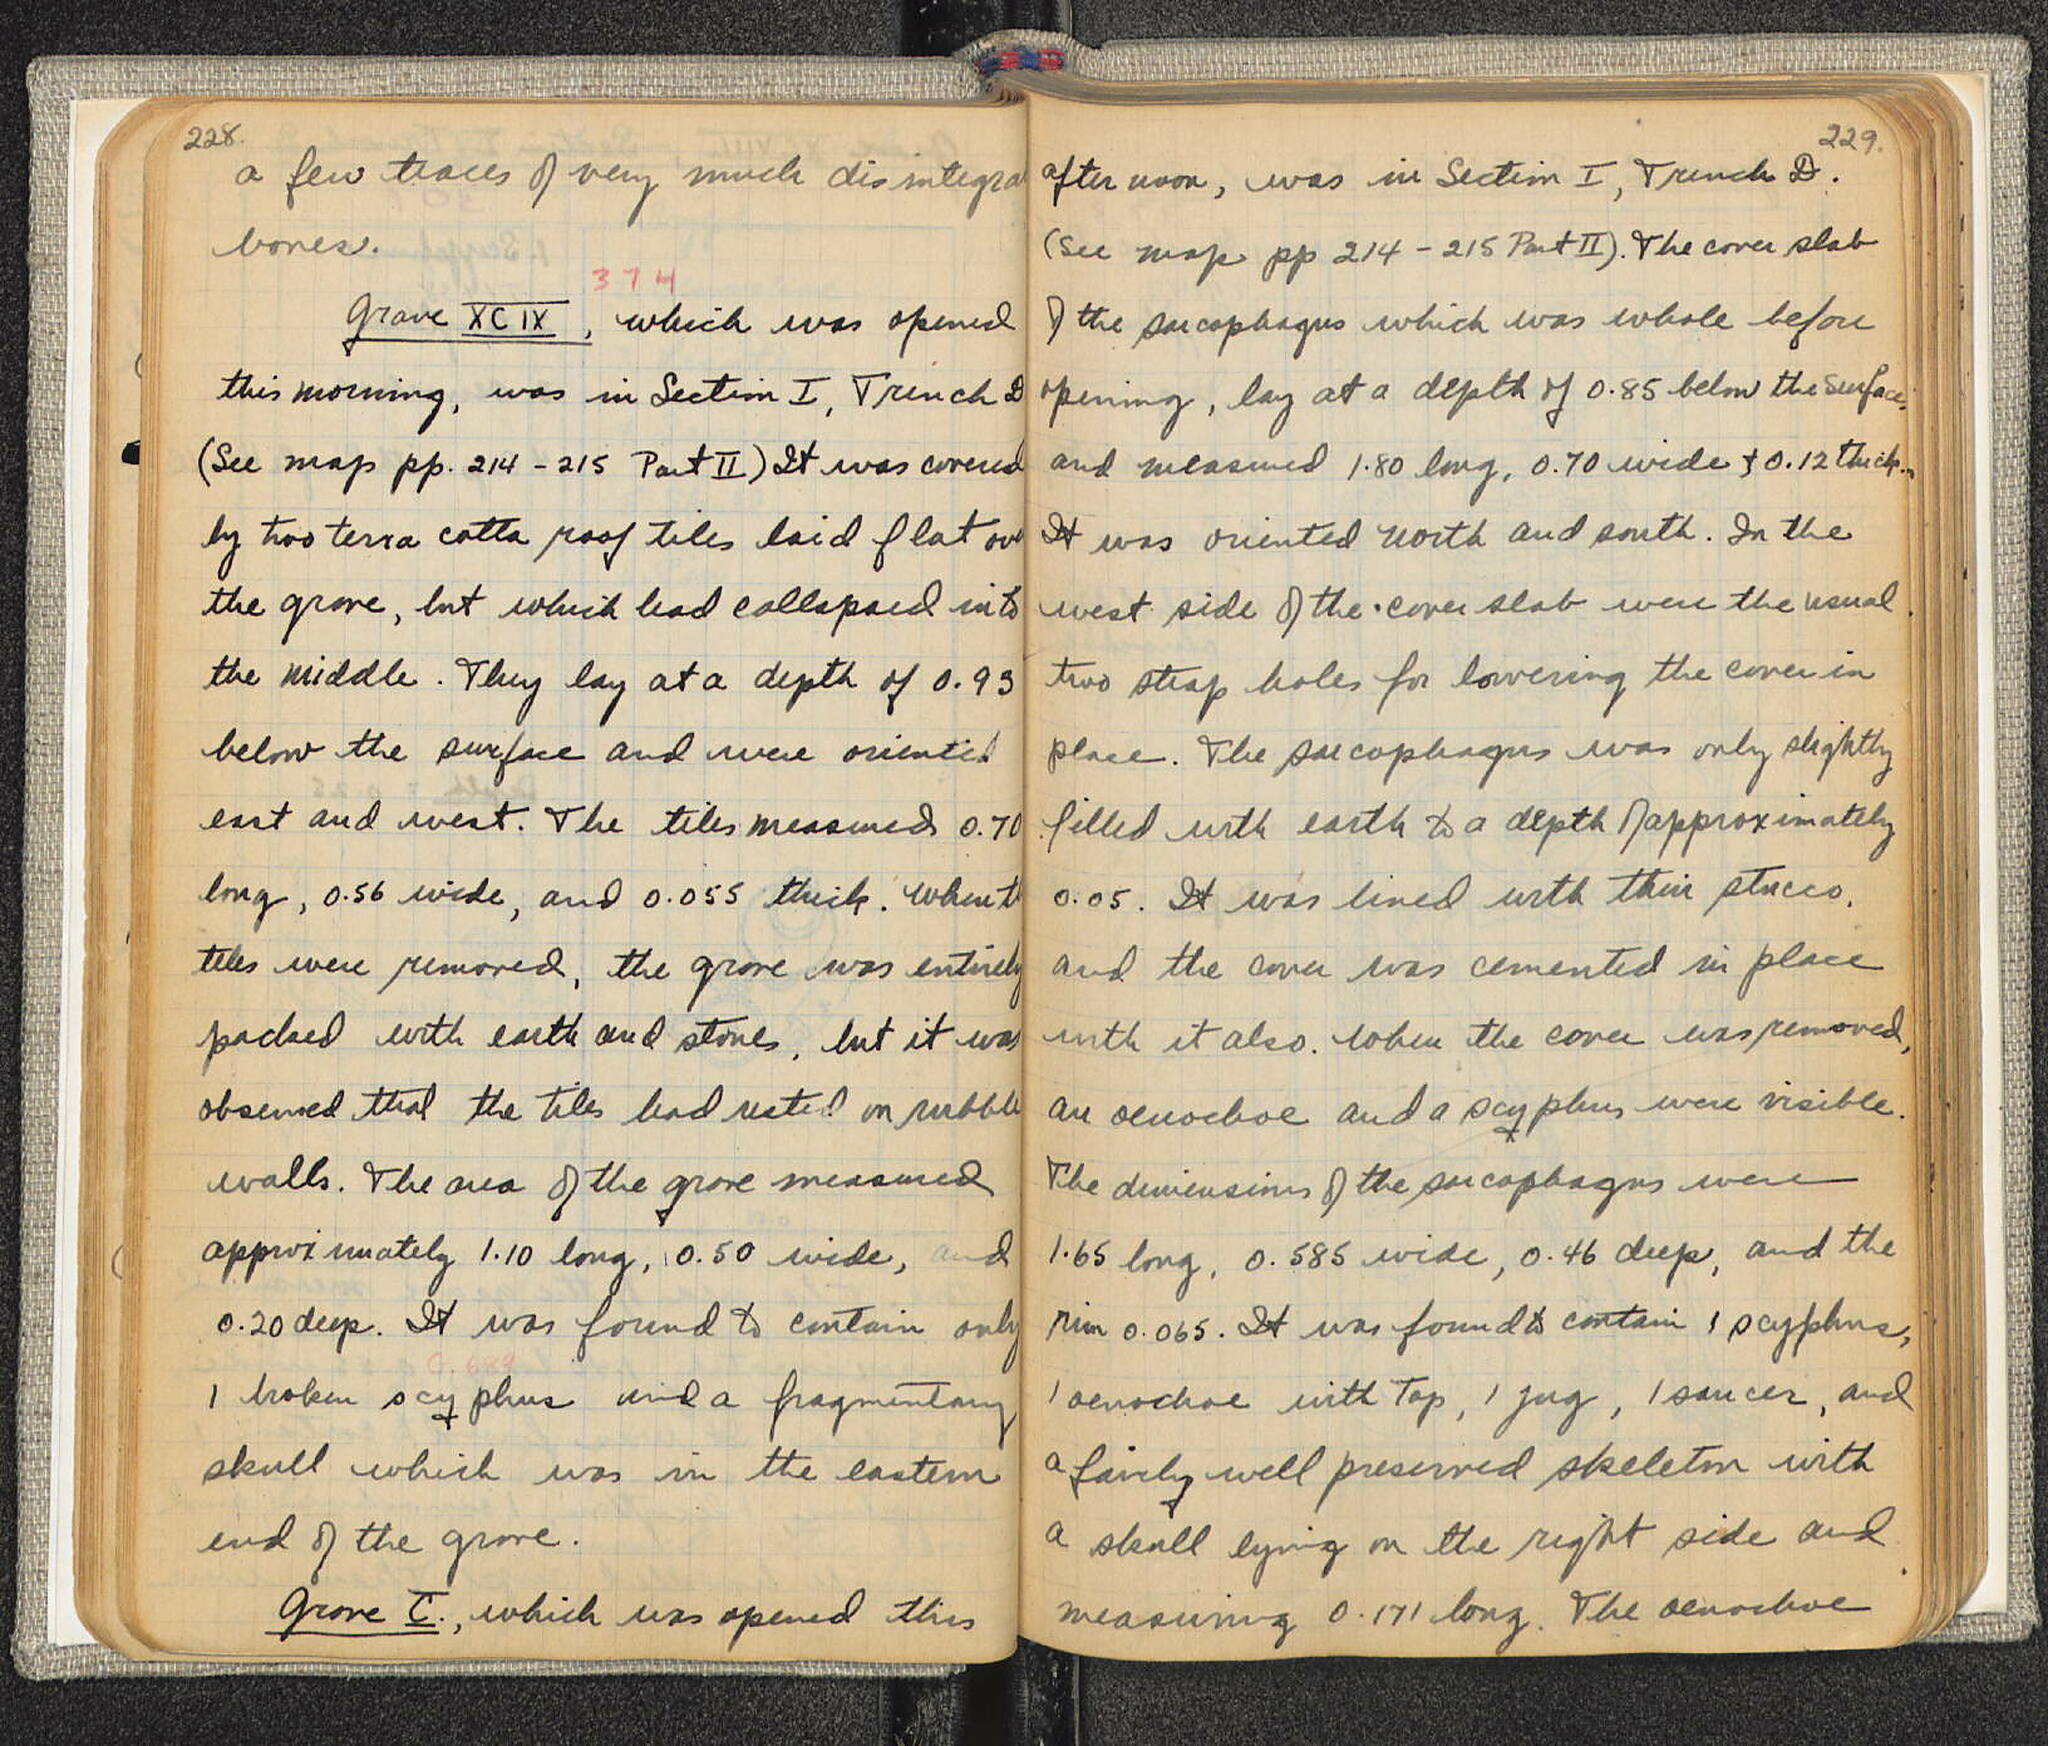 228.
a few traces of very much disintegra
bones.
374
Grave XCIX, which was opened
this morning, was in Section I, Trench D
(See map pp. 214 - 215 Part II) It was covered
by two terra cotta roof tiles laid flat over
the grave, but which had collapsed into
the middle. They lay at a depth of 0.93
below the surface and were oriented
east and west. The tiles measured 0.70
long, 0.56 wide, and 0.055 thick. When th
tiles were removed, the grave was entirely
packed with earth and stones, but it was
observed that the tiles had rested on rubble
walls. The area of the grave measured
approximately 1.10 long, 0.50 wide, and
0.20 deep. It was found to contain only
C. 689
1 broken scyphus and a fragmentary
skull which was in the eastern
end of the grave.
Grave C., which was opened this
229.
afternoon, was in Section I, Trench D.
(See map pp 214 - 215 Part II). The cover slab
of the sarcophagus which was whole before
opening, lay at a depth of 0.85 below the surface,
and measured 1.80 long, 0.70 wide & 0.12 thick.
It was oriented north and south. In the
west side of the cover slab were the usual
two strap holes for lowering the cover in
place. The sarcophagus was only slightly
filled with earth to a depth of approximately
0.05. It was lined with thin stucco,
and the cover was cemented in place
with it also. When the cover was removed,
an oenochoe and a scyphus were visible.
The dimensions of the sarcophagus were
1.65 long, 0.585 wide, 0.46 deep, and the
rim 0.065. It was found to contain 1 scyphus,
1 oenochoe with top, 1 jug, 1 saucer, and
a fairly well preserved skeleton with
a skull lying on the right side and
measuring 0.171 long. The oenochoe